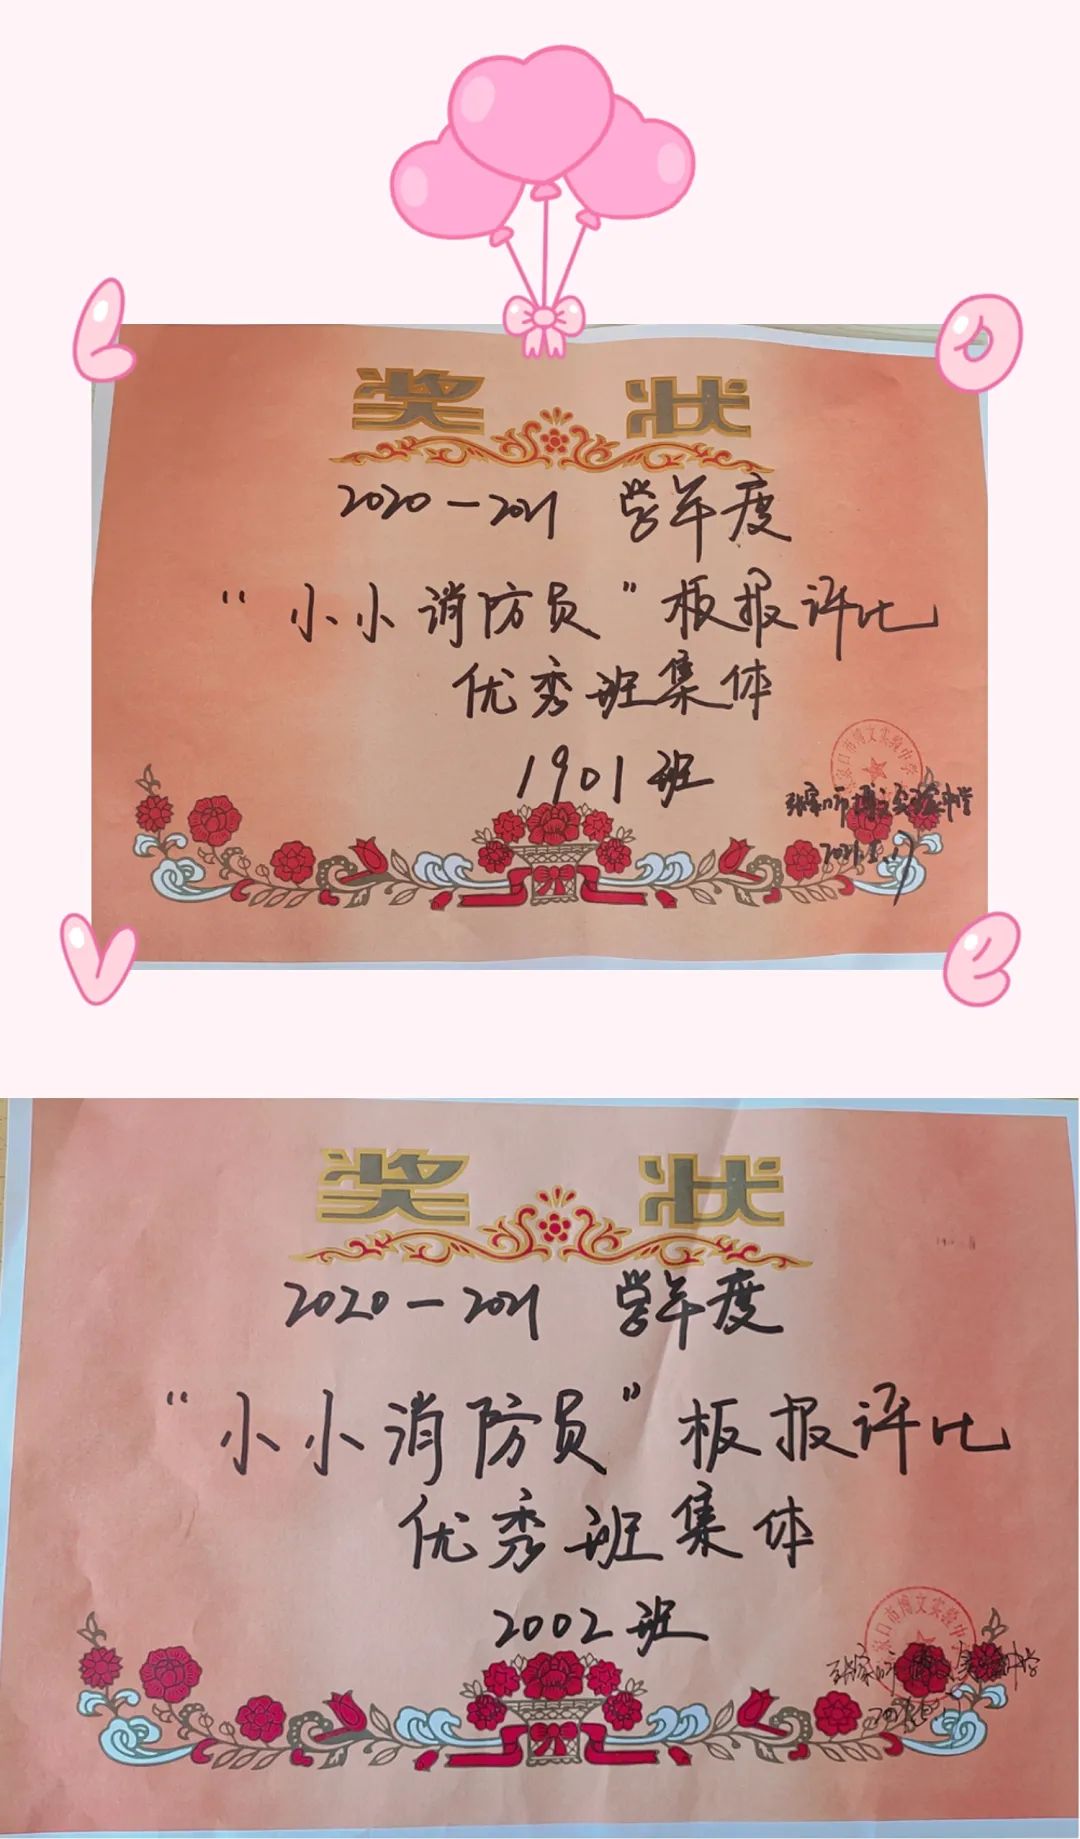 L O
奖 状
2020-2021 学年度
“小小消防员”板报评比
优秀班集体
1901班
张家口市博文实验中学
张家口市博文实验中学
2021.5.17
V E
奖 状
2020-2021 学年度
“小小消防员”板报评比
优秀班集体
2002班
家口市博文实验中
张家口市博文实验中学